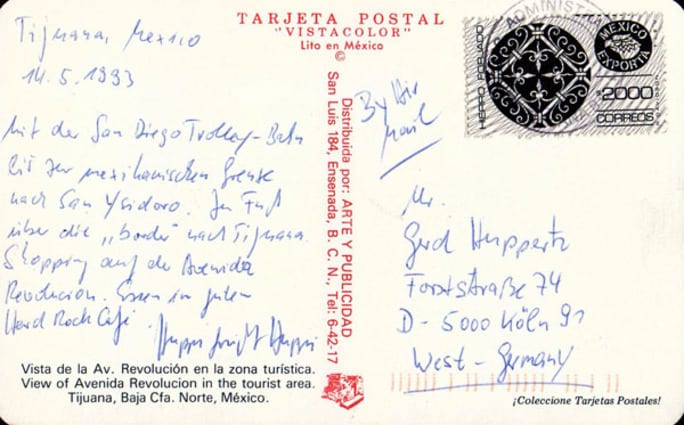 TARJETA POSTAL
"VISTACOLOR"
Lito en México
©
Tijuana, Mexico
14.5.1993
Mit der San Diego Trolley-Bahn
bis zur mexikanischen Grenze
nach San Ysidoro. Zu Fuß
über die „border" nach Tijuana.
Shopping auf der Avenida
Revolucion. Essen im guten
Hard Rock Café.
Vista de la Av. Revolución en la zona turística.
View of Avenida Revolucion in the tourist area.
Tijuana, Baja Cfa. Norte, México.
Distribuida por: ARTE Y PUBLICIDAD
San Luis 184, Ensenada, B. C. N., Tel: 6-42-17
By Air
Mail
ADMINIST
HIERRO FORJADO
MEXICO
EXPORTA
$2000
CORREOS
Mr.
Gerd Huppertz
Forststraße 74
D-5000 Köln 91
West-Germany
¡Coleccione Tarjetas Postales!